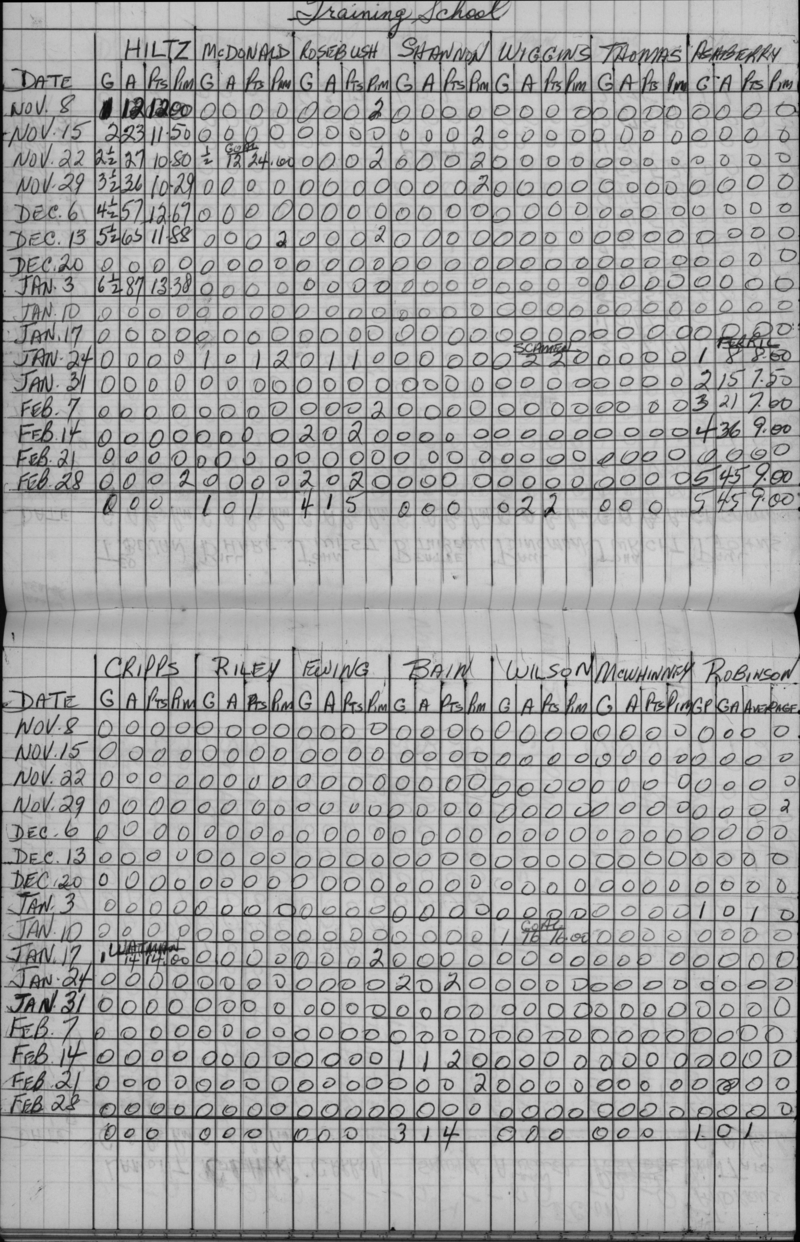 Training School
HILTZ McDONALD ROSEBUSH SHANNON WIGGINS THOMAS ASHBERRY
DATE G A Pts Pim G A Pts Pim G A Pts Pim G A Pts Pim G A Pts Pim G A Pts Pim G A Pts Pim
NOV. 8 1 12 12.00 0 0 0 0 0 0 0 2 0 0 0 0 0 0 0 0 0 0 0 0 0 0 0 0
NOV. 15 2 23 11.50 0 0 0 0 0 0 0 0 0 0 0 2 0 0 0 0 0 0 0 0 0 0 0 0
GOAL
NOV. 22 2½ 27 10.80 ½ 12 24.00 0 0 0 2 0 0 0 2 0 0 0 0 0 0 0 0 0 0 0 0
NOV. 29 3½ 36 10.29 0 0 0 0 0 0 0 0 0 0 0 2 0 0 0 0 0 0 0 0 0 0 0 0
DEC. 6 4½ 57 12.67 0 0 0 0 0 0 0 0 0 0 0 0 0 0 0 0 0 0 0 0 0 0 0 0
DEC. 13 5½ 65 11.88 0 0 0 2 0 0 0 2 0 0 0 0 0 0 0 0 0 0 0 0 0 0 0 0
DEC. 20 0 0 0 0 0 0 0 0 0 0 0 0 0 0 0 0 0 0 0 0 0 0 0 0 0 0 0 0
JAN. 3 6½ 87 13.38 0 0 0 0 0 0 0 0 0 0 0 0 0 0 0 0 0 0 0 0 0 0 0 0
JAN. 10 0 0 0 0 0 0 0 0 0 0 0 0 0 0 0 0 0 0 0 0 0 0 0 0 0 0 0 0
JAN. 17 0 0 0 0 0 0 0 0 0 0 0 0 0 0 0 0 0 0 0 0 0 0 0 0 0 0 0 0
JAN. 24 0 0 0 0 1 0 1 2 0 1 1 0 0 0 0 0 0 2 2 0 0 0 0 0 1 8 8.00
JAN. 31 0 0 0 0 0 0 0 0 0 0 0 0 0 0 0 0 0 0 0 0 0 0 0 0 2 15 7.50
FEB. 7 0 0 0 0 0 0 0 0 0 0 0 2 0 0 0 0 0 0 0 0 0 0 0 0 3 21 7.00
FEB. 14 0 0 0 0 0 0 0 0 2 0 2 0 0 0 0 0 0 0 0 0 0 0 0 0 4 36 9.00
FEB. 21 0 0 0 0 0 0 0 0 0 0 0 0 0 0 0 0 0 0 0 0 0 0 0 0 0 0 0 0
FEB. 28 0 0 0 2 0 0 0 0 2 0 2 0 0 0 0 0 0 0 0 0 0 0 0 0 5 45 9.00
0 0 0 1 0 1 4 1 5 0 0 0 0 2 2 0 0 0 5 45 9.00
CRIPPS RILEY EWING BAIN WILSON McWHINNEY ROBINSON
DATE G A Pts Pim G A Pts Pim G A Pts Pim G A Pts Pim G A Pts Pim G A Pts Pim GP GA AVERAGE
NOV. 8 0 0 0 0 0 0 0 0 0 0 0 0 0 0 0 0 0 0 0 0 0 0 0 0 0 0 0 0
NOV. 15 0 0 0 0 0 0 0 0 0 0 0 0 0 0 0 0 0 0 0 0 0 0 0 0 0 0 0 0
NOV. 22 0 0 0 0 0 0 0 0 0 0 0 0 0 0 0 0 0 0 0 0 0 0 0 0 0 0 0 0
NOV. 29 0 0 0 0 0 0 0 0 0 0 0 0 0 0 0 0 0 0 0 0 0 0 0 0 0 0 0 2
DEC. 6 0 0 0 0 0 0 0 0 0 0 0 0 0 0 0 0 0 0 0 0 0 0 0 0 0 0 0 0
DEC. 13 0 0 0 0 0 0 0 0 0 0 0 0 0 0 0 0 0 0 0 0 0 0 0 0 0 0 0 0
DEC. 20 0 0 0 0 0 0 0 0 0 0 0 0 0 0 0 0 0 0 0 0 0 0 0 0 0 0 0 0
JAN. 3 0 0 0 0 0 0 0 0 0 0 0 0 0 0 0 0 0 0 0 0 0 0 0 0 1 0 1 0
GOAL
JAN. 10 0 0 0 0 0 0 0 0 0 0 0 0 0 0 0 0 1 16 16.00 0 0 0 0 0 0 0 0
JAN. 17 1 14 14.00 0 0 0 0 0 0 0 2 0 0 0 0 0 0 0 0 0 0 0 0 0 0 0 0
JAN. 24 0 0 0 0 0 0 0 0 0 0 0 0 2 0 2 0 0 0 0 0 0 0 0 0 0 0 0 0
JAN 31 0 0 0 0 0 0 0 0 0 0 0 0 0 0 0 0 0 0 0 0 0 0 0 0 0 0 0 0
FEB. 7 0 0 0 0 0 0 0 0 0 0 0 0 0 0 0 0 0 0 0 0 0 0 0 0 0 0 0 0
FEB. 14 0 0 0 0 0 0 0 0 0 0 0 0 1 1 2 0 0 0 0 0 0 0 0 0 0 0 0 0
FEB. 21 0 0 0 0 0 0 0 0 0 0 0 0 0 0 0 2 0 0 0 0 0 0 0 0 0 0 0 0
FEB. 28 0 0 0 0 0 0 0 0 0 0 0 0 0 0 0 0 0 0 0 0 0 0 0 0 0 0 0 0
0 0 0 0 0 0 0 0 0 3 1 4 0 0 0 0 0 0 1 0 1